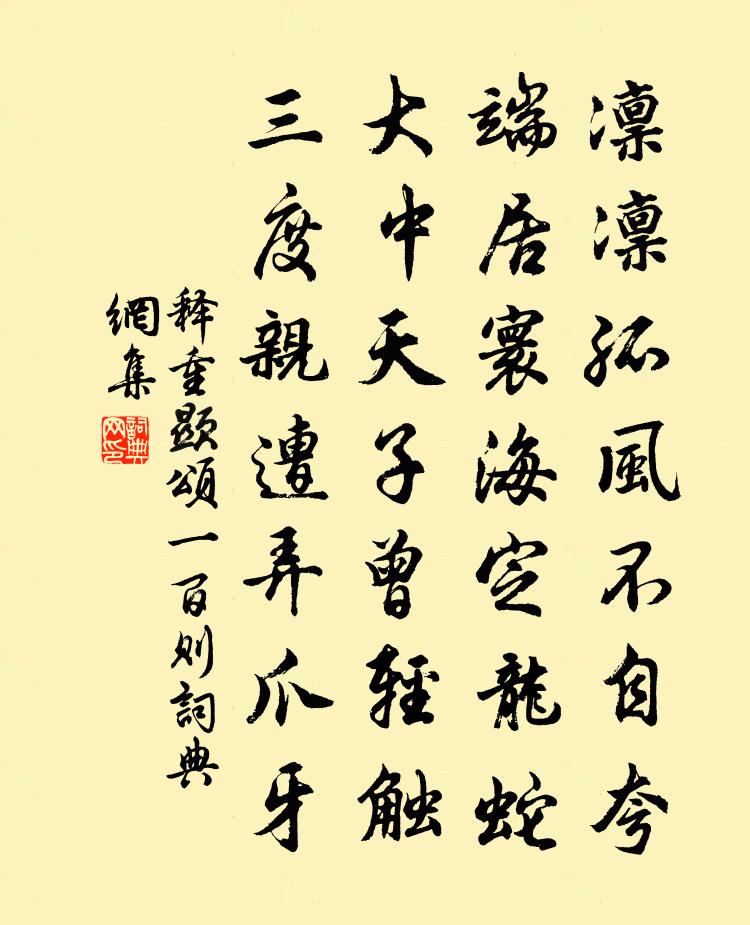 凛凛孤風不自夸
端居寰海定龍蛇
大中天子曾輕触
三度親遭弄爪牙
释重顯頌一百则詞典
網集
詞典
网印